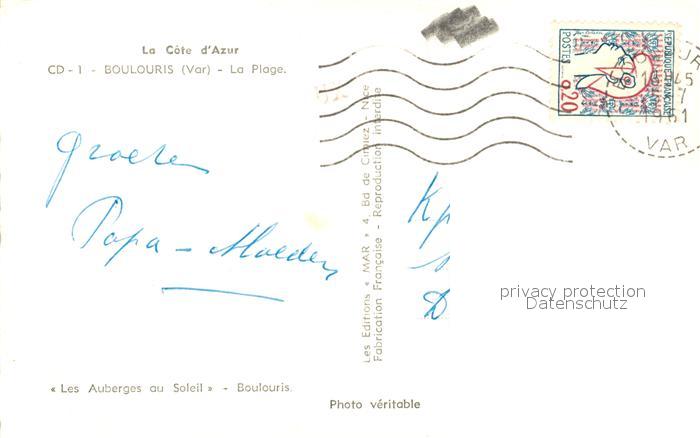 La Côte d'Azur
CD - 1 - BOULOURIS (Var) - La Plage.
Groeten
Papa - Moeder
« Les Auberges au Soleil » - Boulouris.
Les Editions « MAR » 4, Bd de Cimiez - Nice
Fabrication Française - Reproduction interdite
Photo véritable
POSTES
REPUBLIQUE FRANÇAISE
0,20
45
7
1961
VAR
Kp
D
privacy protection
Datenschutz